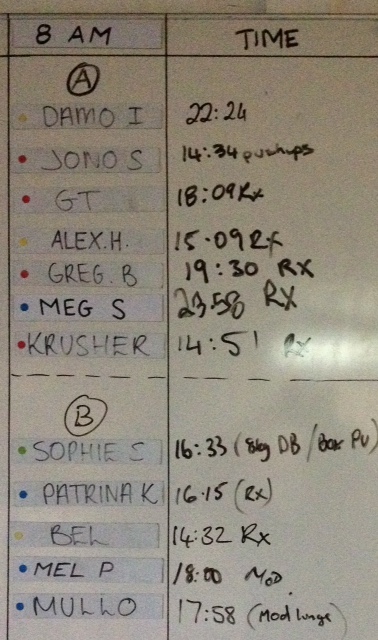 8 AM TIME
A
DAMO I 22:24
JONO S 14:34 pushups
GT 18:09 Rx
ALEX.H. 15.09 Rx
GREG.B 19:30 RX
MEG S 23:58 RX
KRUSHER 14:51 Rx
B
SOPHIE S 16:33 (8kg DB / Box PU)
PATRINA K 16.15 (Rx)
BEL 14:32 Rx
MEL P 18:00 MOD
MULLO 17:58 (Mod lunge)